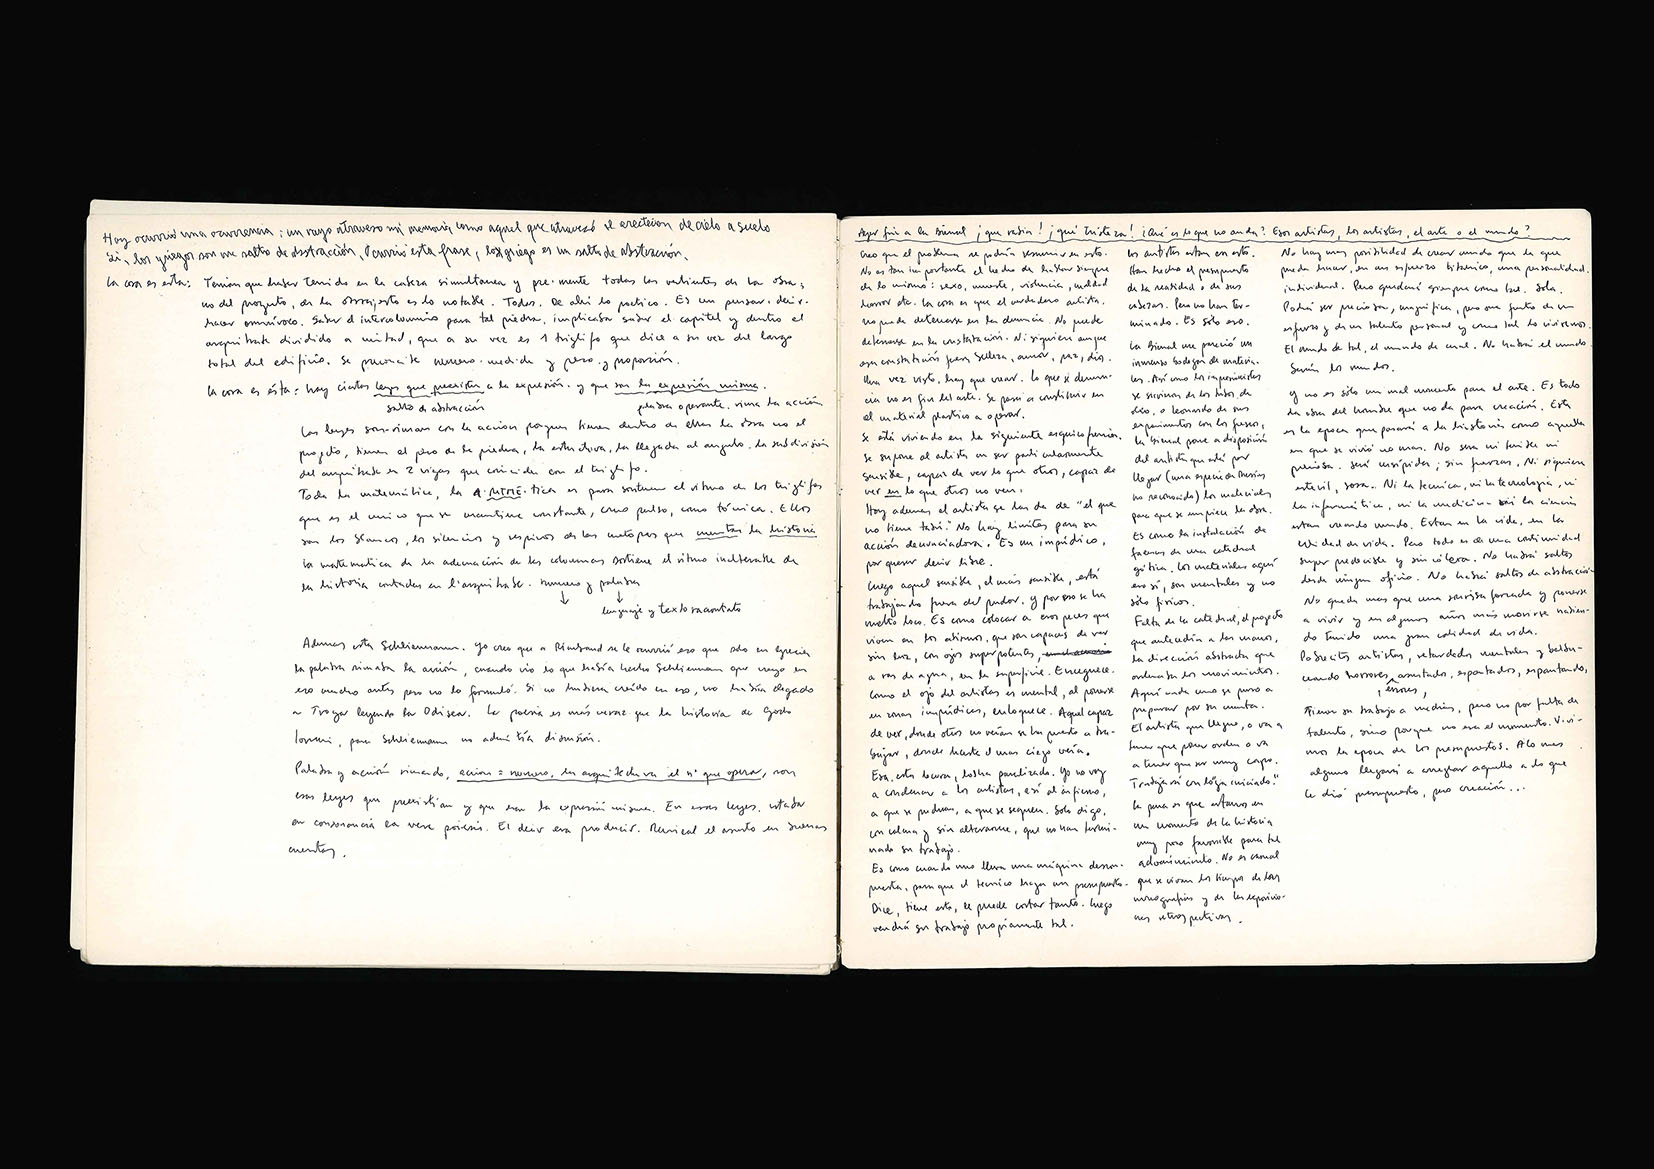 Hoy ocurrió una ocurrencia; un rayo atraveso mi memoria como aquel que atravesó el erecteion de cielo a suelo
Si, los griegos son un salto de abstracción, Ocurrio esta frase, lo griego es un salto de abstración.
La cosa es esta: Tenian que haber tenido en la cabeza simultanea y pre-mente todas las valientes de la obra;
no del proyecto, de la obra, esto es lo notable. Todos. De ahí lo poético. Es un pensar-decir-
hacer omnívoco. Saber el intercolumnio para tal piedra, implicaba saber el capitel y dentro el
arquitrabe dividido a mitad, que a su vez es 1 triglifo que dice a su vez del largo
total del edificio. Se preconcibe numero-medida y peso y proporsión.
La cosa es ésta: hay ciertas leyes que preexisten a la expresión. y que son la expresión misma.
salto de abstracción palabra operante. rima la acción
Las leyes son-riman con la accion porque tienen dentro de ellas la obra no el
proyecto, tienen el peso de la piedra, la estructura, la llegada al angulo, la subdivisión
del arquitrabe en 2 vigas que coinciden con el triglifo.
Toda la matemática, la A-RITME-tica es para sostener el ritmo de los triglifos
que es el unico que se mantiene constante, como pulso, como tónica. Ellos
son los blancos, los silencios y respiros de las metopas que cuentan la historia
la matematica de la adecuación de las columnas sostiene el ritmo inalterable de
la historia contadas en l'arquitrabe. numero y palabra
↓ ↓
lenguaje y texto racontato
Ademas esta Schliemann. Yo creo que a Rimbaud se le ocurrió eso que solo en Grecia
la palabra rimaba la acción, cuando vio lo que había hecho Schliemann que creyo en
eso mucho antes pero no lo formuló. Si no hubiera creído en eso, no había llegado
a Troya leyendo la Odisea. La poesía es más veraz que la historia de Godo
para Schliemann no admitía discusión.
Palabra y acción rimando, accion = numero, en arquitectura el nº que opera, son
esas leyes que preexistían y que eran la expresión misma. En esas leyes, estaba
en consonancia la vera poiesis. El decir era producir. Musical el asunto en buenas
cuentas.
Ayer fui a la Bienal ¡que rabia! ¡qué tristeza! ¿Qué es lo que no anda? Esos artistas, los artistas, el arte o el mundo?
Creo que el problema se podría resumir en esto.
No es tan importante el hecho de hablar siempre
de lo mismo: sexo, muerte, violencia, maldad
horror etc. La cosa es que el verdadero artista.
no puede detenerse en la denuncia. No puede
detenerse en la constatación. Ni siquiera aunque
esa constatación fuera belleza, amor, paz, dios.
Una vez visto, hay que crear. Lo que se denun-
cia no es fin del arte. Se pasa a constituir en
el material plastico a operar.
Se está viviendo en la siguiente esquizofrenia.
Se supone al artista un ser particularmente
sensible, capaz de ver lo que otros, capaz de
ver en lo que otros no ven.
Hoy ademas el artista se las da de "el que
no tiene tabú". No hay limites para su
acción denunciadora. Es un impúdico,
por querer decir libre.
Luego aquel sensible, el más sensible, está
trabajando fuera del pudor. y por eso se ha
vuelto loco. Es como colocar a esos peces que
viven en los abismos, que son capaces de ver
sin luz, con ojos superpotentes,
a ras de agua, en la superficie. Enceguece.
Como el ojo del artista es mental, al ponerse
en zonas impúdicas, enloquece. Aquel capaz
de ver, donde otros no veían se ha puesto a tra-
bajar, donde hasta el mas ciego vería.
Esa, esta locura, los ha paralizado. Yo no voy
a condenar a los artistas, así al infierno,
a que se pudran, a que se sequen. Solo digo,
con calma y sin alterarme, que no han termi-
nado su trabajo.
Es como cuando uno lleva una máquina descom-
puesta, para que el tecnico haga un presupuesto.
Dice, tiene esto, le puede costar tanto. Luego
vendrá su trabajo propiamente tal.
Los artistas estan en esto.
Han hecho el presupuesto
de la realidad o de sus
cabezas. Pero no han ter-
minado. Es sólo eso.
La Bienal me pareció un
inmenso bodegon de materia-
les. Así como los impresionistas
se sirvieron de los tubos de
óleo, o Leonardo de sus
experimentos con los frescos,
la Bienal pone a disposición
del artista que está por
llegar (una especie de Mesías
no reconocido) los materiales
para que se empiece la obra.
Es como la instalación de
faenas de una catedral
gótica. Los materiales aquí
eso sí, son mentales y no
sólo físicos.
Falta de la catedral, el proyecto
que antecedía a las manos,
la dirección abstracta que
ordenaba los movimientos.
Aquí cada uno se puso a
preparar por su cuenta.
El artista que llegue, o va a
tener que poner orden o va
a tener que ser muy capo.
"Trabajará con legna iniciado."
La pura es que estamos en
un momento de la historia
muy poco favorable para tal
advenimiento. No es casual
que se vivan los tiempos de las
monografías y de las exposicio-
nes retrospectivas.
No hay mas posibilidad de crear mundo que la que
pueda hacer, en un esfuerzo titánico, una personalidad
individual. Pero quedará siempre como tal. Sola.
Podrá ser preciosa, magnífica, pero una fruto de un
esfuerzo y de un talento personal y como tal lo viviremos.
El mundo de tal, el mundo de cual. No habrá el mundo
Serán los mundos.
Y no es sólo un mal momento para el arte. Es toda
la obra del hombre que no da para creación. Esta
es la epoca que pasará a la historia como aquella
en que se vivió no mas. No sera ni terrible ni
preciosa. Será insípida; sin fuerzas. Ni siquiera
esteril, sosa.. Ni la tecnica, ni la tecnología, ni
la informática, ni la medicina ni la ciencia
estan creando mundo. Estan en la vida, en la
calidad de vida. Pero todo es de una continuidad
super predecible y sin cólera. No habrá saltos
desde ningun oficio. No habrá saltos de abstracción
No queda mas que una sonrisa forzada y ponerse
a vivir y en algunos años más morirse habien-
do tenido una gran calidad de vida.
Pobrecitos artistas, retardados mentales y balbu-
ceando horrores, asustados, espantados, espantando,
errores,
tienen su trabajo a medias, pero no por falta de
talento, sino porque no era el momento. Vivi-
mos la epoca de los presupuestos. A lo mas
alguno llegará a arreglar aquello a lo que
le dió presupuesto, pero creación...